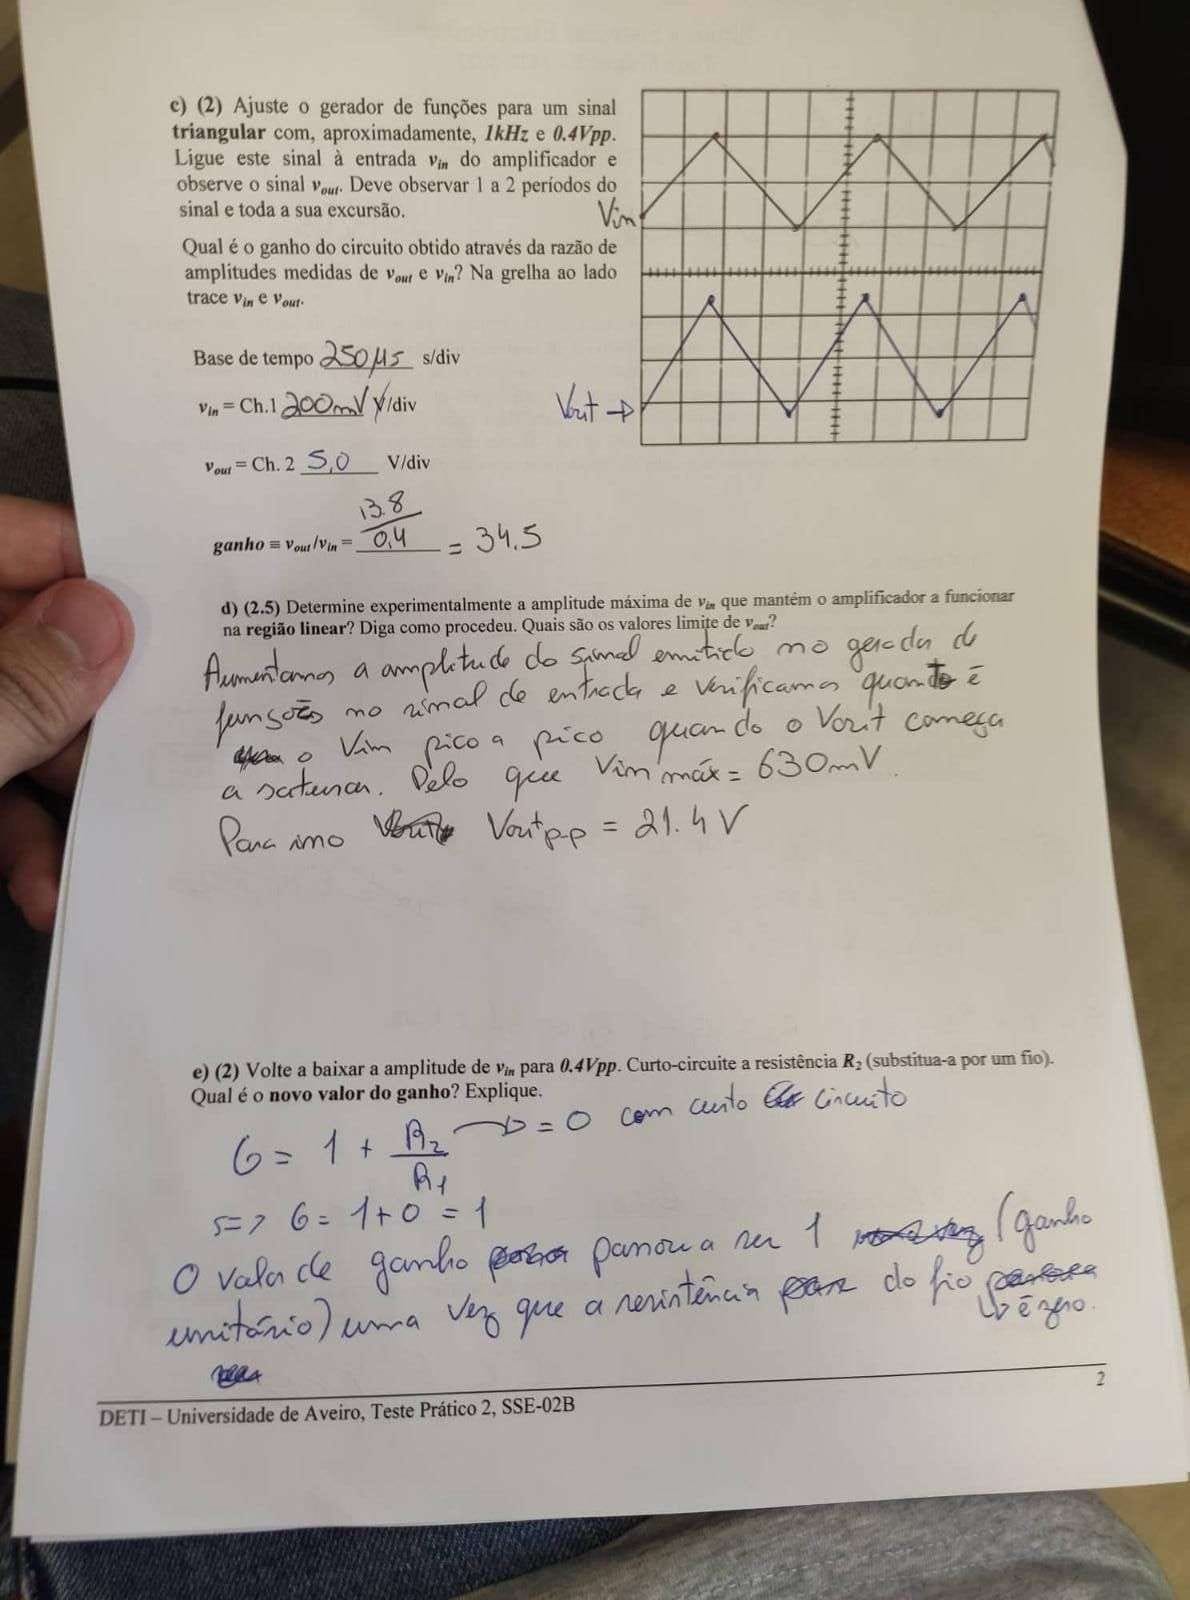 c) (2) Ajuste o gerador de funções para um sinal
triangular com, aproximadamente, 1kHz e 0.4Vpp.
Ligue este sinal à entrada vin do amplificador e
observe o sinal vout. Deve observar 1 a 2 períodos do
sinal e toda a sua excursão.
Vin
Qual é o ganho do circuito obtido através da razão de
amplitudes medidas de vout e vin? Na grelha ao lado
trace vin e vout.
Base de tempo 250µs s/div
vin = Ch.1 200mV V/div
Vout →
vout = Ch. 2 5,0 V/div
ganho ≡ vout/vin = 13.8/0,4 = 34.5
d) (2.5) Determine experimentalmente a amplitude máxima de vin que mantém o amplificador a funcionar
na região linear? Diga como procedeu. Quais são os valores limite de vout?
Aumentamos a amplitude do sinal emitido no gerador de
funções no sinal de entrada e verificamos quanto é
o Vin pico a pico quando o Vout começa
a saturar. Pelo que Vin máx = 630mV.
Para isso Vout p-p = 21.4 V
e) (2) Volte a baixar a amplitude de vin para 0.4Vpp. Curto-circuite a resistência R2 (substitua-a por um fio).
Qual é o novo valor do ganho? Explique.
G = 1 + R2/R1 → = 0 com curto circuito
s=> G = 1+0 = 1
O valor de ganho passou a ser 1 (ganho
unitário) uma vez que a resistência do fio
↳ é zero.
2
DETI – Universidade de Aveiro, Teste Prático 2, SSE-02B